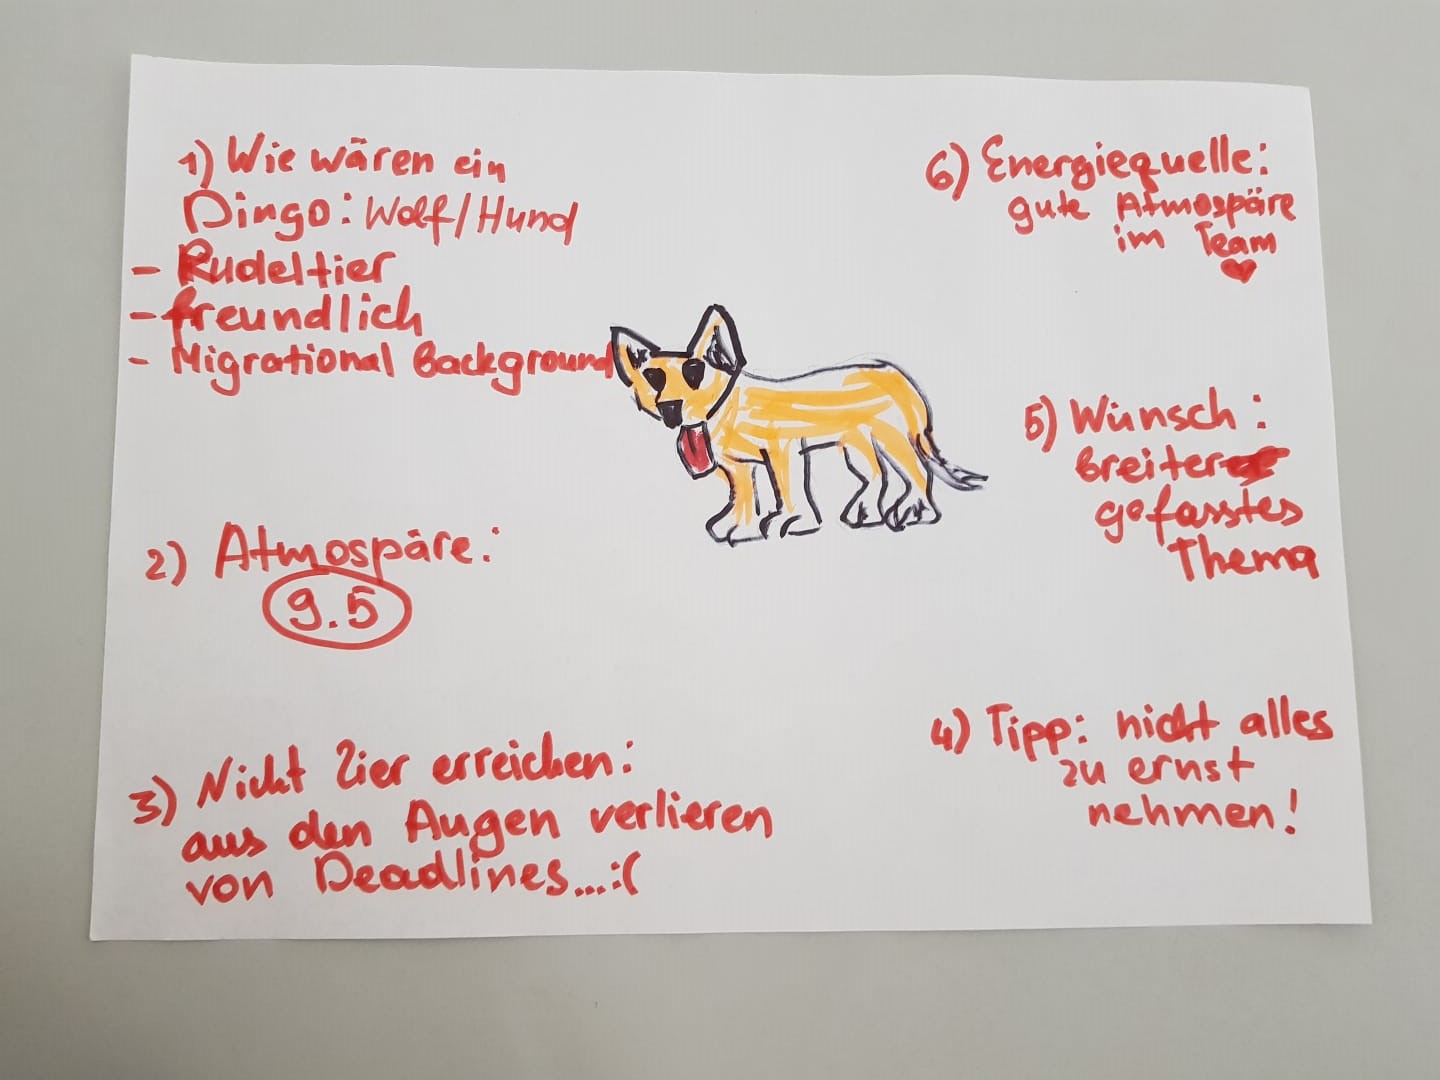 1) Wie wären ein
Dingo: Wolf/Hund
- Rudeltier
- freundlich
- Migrational Background
2) Atmospäre:
9.5
3) Nicht Zier erreichen:
aus den Augen verlieren
von Deadlines...:(
4) Tipp: nicht alles
zu ernst
nehmen!
5) Wünsch:
breiter
gefasstes
Thema
6) Energiequelle:
gute Atmospäre
im Team
♥